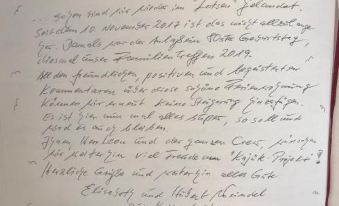 ... schon sind wir wieder im Lotsen gelandet.
Seit dem 10. November 2017 ist das nicht allzu lange
her. Damals war der Anlaß ein Geburtstag,
diesmal unser Familientreffen 2019.
All den freundlichen, positiven und begeisterten
Kommentaren über diese schöne Ferienwohnung
können wir erneut keine Steigerung hinzufügen.
Es ist hier nun mal alles super, so soll und
wird es auch bleiben.
Ihnen, und der ganzen Crew, wünschen
wir weiterhin viel Freude am "Projekt"!
Herzliche Grüße und weiterhin alles Gute
Elisabeth und Hubert